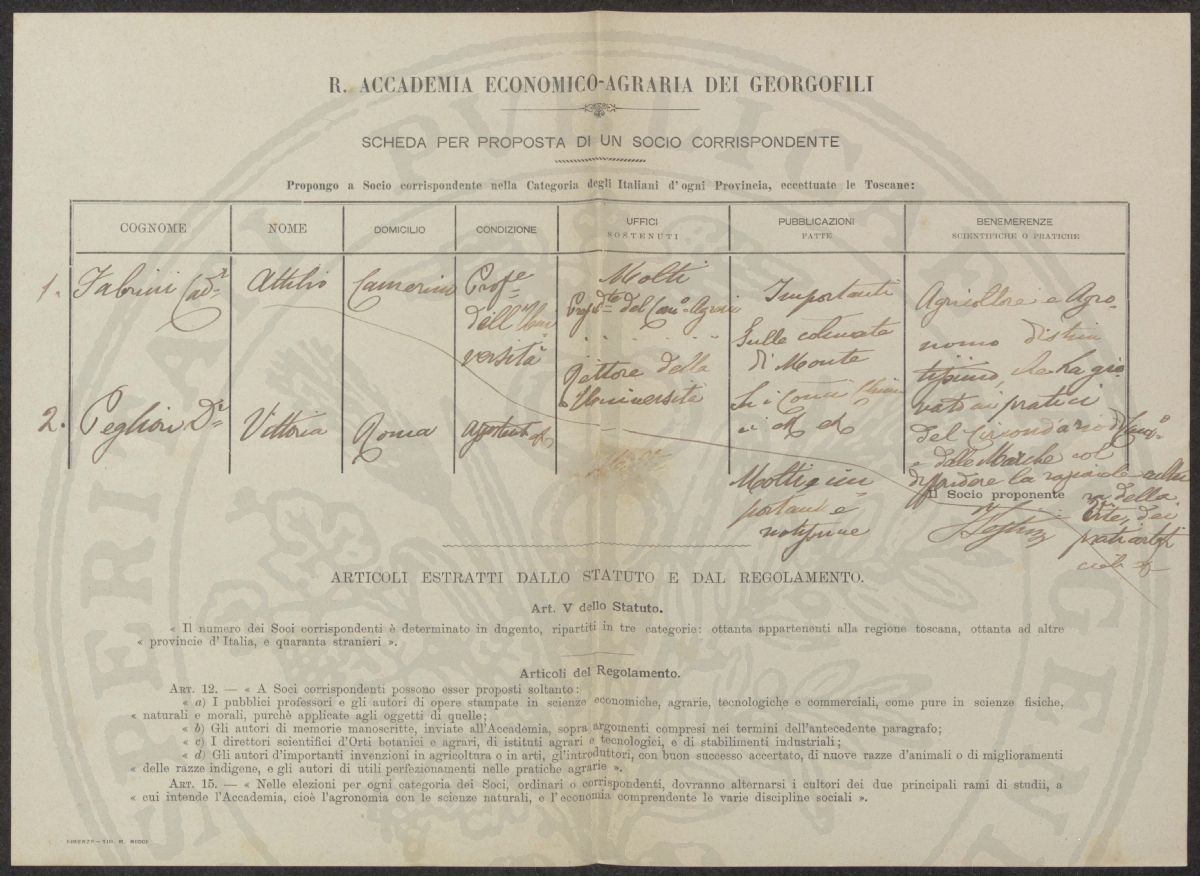 R. ACCADEMIA ECONOMICO-AGRARIA DEI GEORGOFILI
SCHEDA PER PROPOSTA DI UN SOCIO CORRISPONDENTE
Propongo a Socio corrispondente nella Categoria degli Italiani d'ogni Provincia, eccettuate le Toscane:
COGNOME NOME DOMICILIO CONDIZIONE UFFICI SOSTENUTI PUBBLICAZIONI FATTE BENEMERENZE SCIENTIFICHE O PRATICHE
1. Fabrini Cad.r Attilio Camerino Profe
dell'Uni
versità
Molti
del Agrari
Rettore della
Università
Importanti
Sulle colmate
di Monte
Agricoltore e Agro-
nomo distin
tissimo, che ha gio
vato ai pratici
del Circondario di
e delle Marche col
diffondere la razionale coltu
ra della
Vite, dei
prati artifi
ciali
2. Peglion Dr Vittorio Roma
Molti e im
portanti e
Il Socio proponente
ARTICOLI ESTRATTI DALLO STATUTO E DAL REGOLAMENTO.
Art. V dello Statuto.
« Il numero dei Soci corrispondenti è determinato in dugento, ripartiti in tre categorie: ottanta appartenenti alla regione toscana, ottanta ad altre
« provincie d'Italia, e quaranta stranieri ».
Articoli del Regolamento.
ART. 12. — « A Soci corrispondenti possono esser proposti soltanto:
« a) I pubblici professori e gli autori di opere stampate in scienze economiche, agrarie, tecnologiche e commerciali, come pure in scienze fisiche,
« naturali e morali, purchè applicate agli oggetti di quelle;
« b) Gli autori di memorie manoscritte, inviate all'Accademia, sopra argomenti compresi nei termini dell'antecedente paragrafo;
« c) I direttori scientifici d'Orti botanici e agrari, di istituti agrari e tecnologici, e di stabilimenti industriali;
« d) Gli autori d'importanti invenzioni in agricoltura o in arti, gl'introduttori, con buon successo accertato, di nuove razze d'animali o di miglioramenti
« delle razze indigene, e gli autori di utili perfezionamenti nelle pratiche agrarie ».
ART. 15. — « Nelle elezioni per ogni categoria dei Soci, ordinari o corrispondenti, dovranno alternarsi i cultori dei due principali rami di studii, a
« cui intende l'Accademia, cioè l'agronomia con le scienze naturali, e l'economia comprendente le varie discipline sociali ».
FIRENZE — TIP. M. RICCI